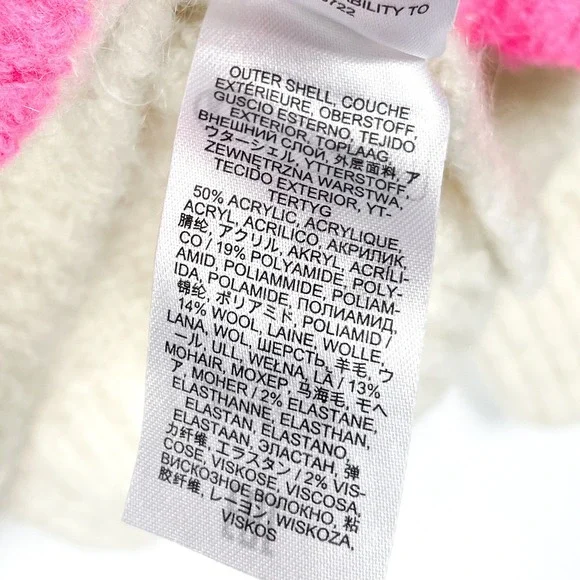 IBILITY TO
OUTER SHELL, COUCHE
EXTÉRIEURE, OBERSTOFF,
GUSCIO ESTERNO, TEJIDO
EXTERIOR, TOPLAAG,
ВНЕШНИЙ СЛОЙ, 外层面料, ア
ウターシェル, YTTERSTOFF,
ZEWNETRZNA WARSTWA,
TECIDO EXTERIOR, YT-
TERTYG
50% ACRYLIC, ACRYLIQUE,
ACRYL, ACRILICO, АКРИЛИК,
腈纶, アクリル, AKRYL, ACRÍLI-
CO / 19% POLYAMIDE, POLY-
AMID, POLIAMMIDE, POLIAM-
IDA, POLAMIDE, ПОЛИАМИД,
锦纶, ポリアミド, POLIAMID /
14% WOOL, LAINE, WOLLE,
LANA, WOL, ШЕРСТЬ, 羊毛, ウ
ール, ULL, WEŁNA, LÃ / 13%
MOHAIR, МОХЕР, 马海毛, モヘ
ア, MOHER / 2% ELASTANE,
ELASTHANNE, ELASTHAN,
ELASTAN, ELASTANO,
ELASTAAN, ЭЛАСТАН, 弹
力纤维, エラスタン / 2% VIS-
COSE, VISKOSE, VISCOSA,
ВИСКОЗНОЕ ВОЛОКНО, 粘
胶纤维, レーヨン, WISKOZA,
VISKOS